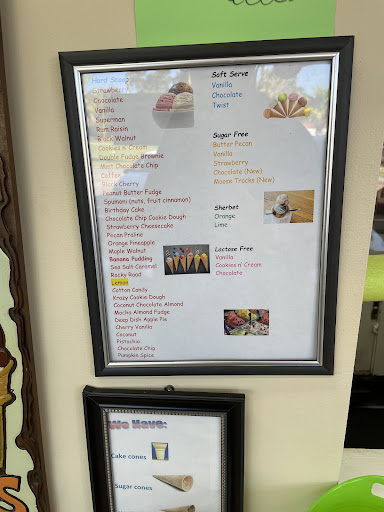 Hard Scoop
Strawberry
Chocolate
Vanilla
Superman
Rum Raisin
Black Walnut
Cookies n' Cream
Double Fudge Brownie
Mint Chocolate Chip
Coffee
Black Cherry
Peanut Butter Fudge
Spumoni (nuts, fruit cinnamon)
Birthday Cake
Chocolate Chip Cookie Dough
Strawberry Cheesecake
Pecan Praline
Orange Pineapple
Maple Walnut
Banana Pudding
Sea Salt Caramel
Rocky Road
Lemon
Cotton Candy
Krazy Cookie Dough
Coconut Chocolate Almond
Mocha Almond Fudge
Deep Dish Apple Pie
Cherry Vanilla
Coconut
Pistachio
Chocolate Chip
Pumpkin Spice
Soft Serve
Vanilla
Chocolate
Twist
Sugar Free
Butter Pecan
Vanilla
Strawberry
Chocolate (New)
Moose Tracks (New)
Sherbet
Orange
Lime
Lactose Free
Vanilla
Cookies n' Cream
Chocolate
We Have:
Cake cones
Sugar cones